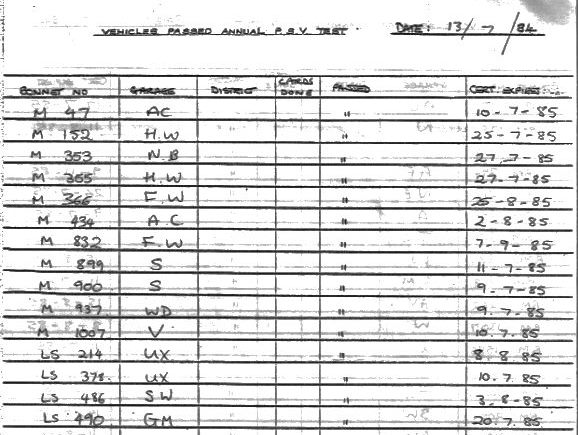 VEHICLES PASSED ANNUAL P.S.V TEST. DATE: 13/-7/84
BONNET NO GARAGE DISTRICT CARDS DONE PASSED CERT. EXPIRES
M 47 AC " 10-7-85
M 152 H.W " 25-7-85
M 353 N.B " 27.7-85
M 365 H.W " 27-7-85
M 366 F.W " 25-8-85
M 434 A C " 2-8-85
M 832 F.W " 7-9-85
M 899 S " 11-7-85
M 900 S " 9.7-85
M 937 WD " 9.7-85
M 1007 V " 10.7.85
LS 214 UX " 8.8.85
LS 378. UX " 10.7.85
LS 486 SW " 3.8-85
LS 490 GM " 20.7.85